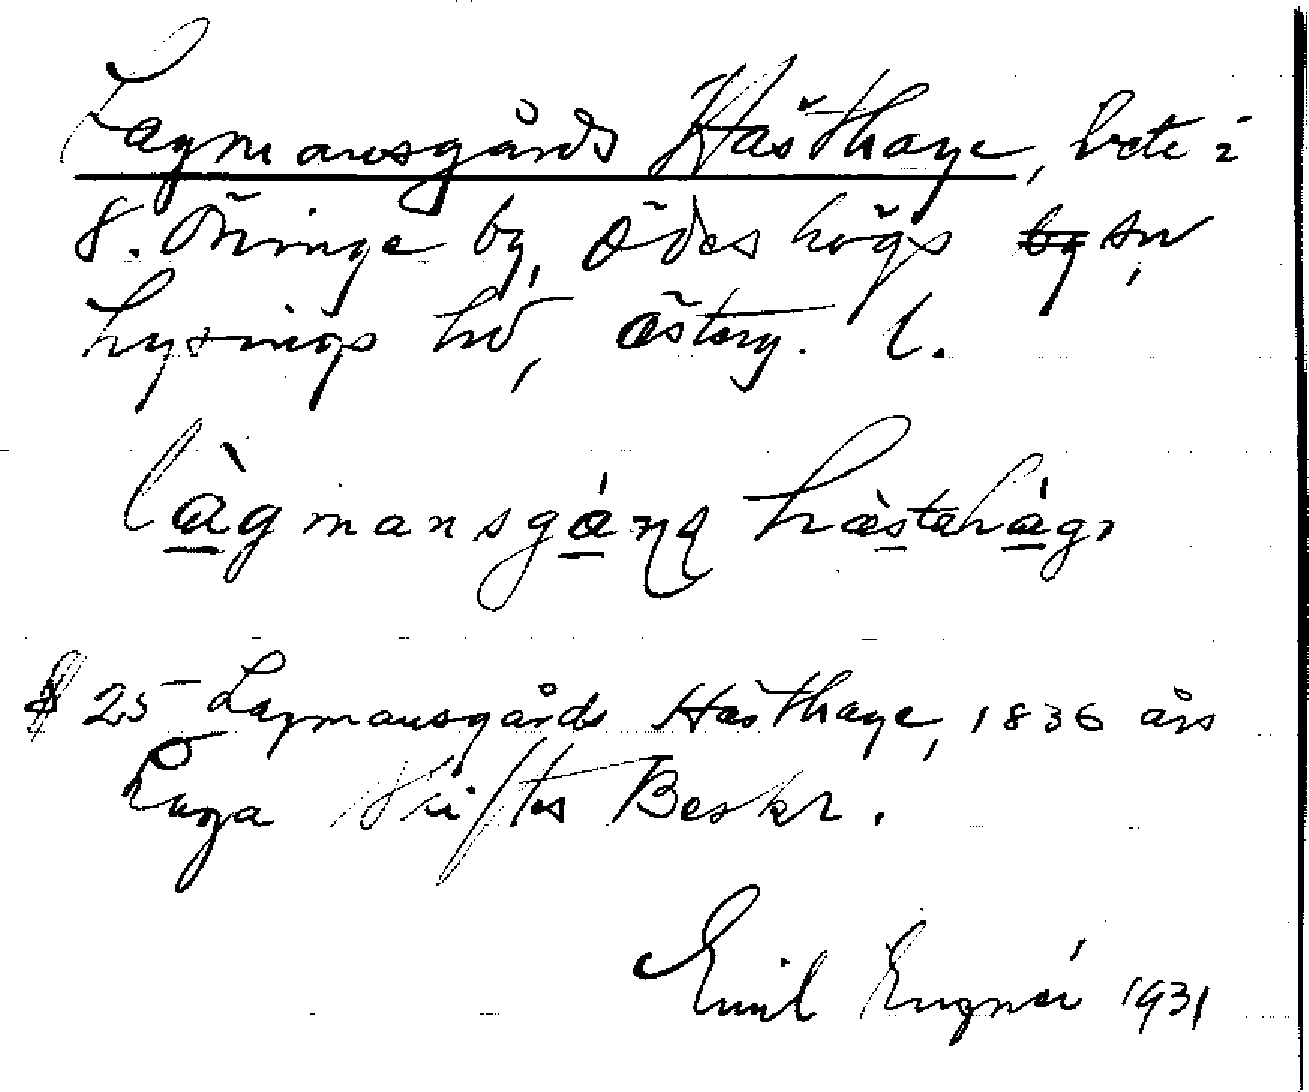 Lagmansgårds Hästhage, bete i
S. Öninge by, Ödeshögs by sn,
Lysings hd, Österg. l.
làgmansgáꞃḍ hæ̀stəhágɩ
§ 25 Lagmansgårds Hästhage, 1836 års
Laga Skiftes Beskr.
Emil Engnér 1931